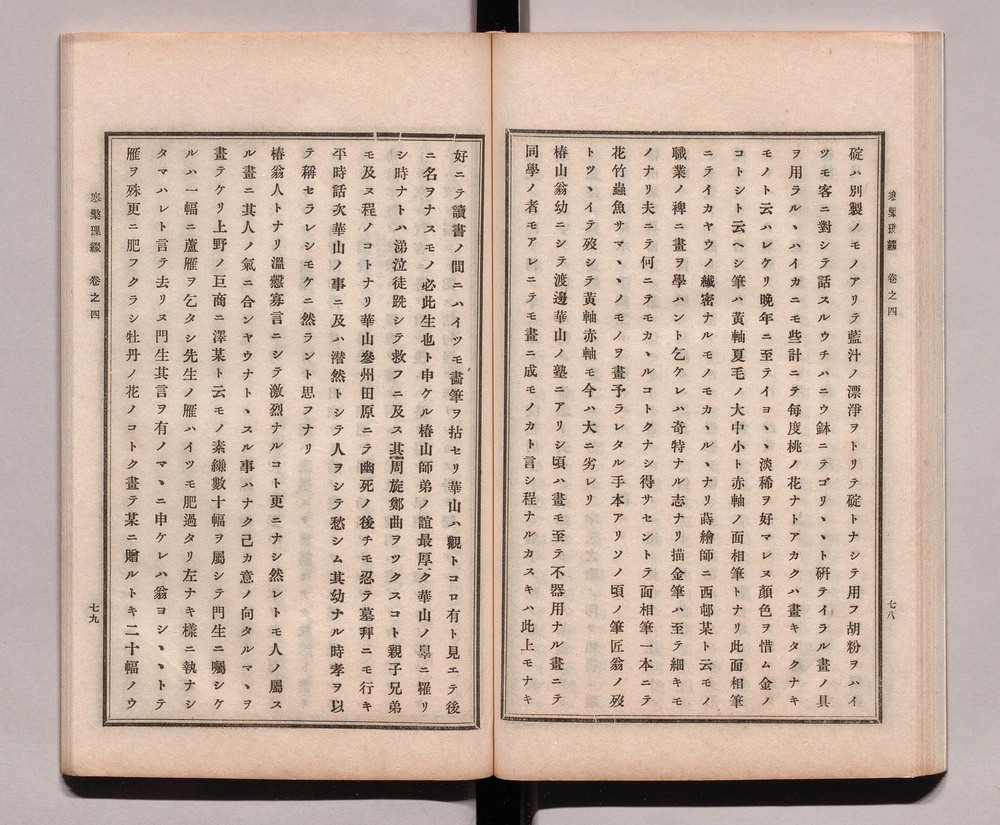 寒檠璅綴 卷之四
七八
碇ハ別製ノモノアリテ藍汁ノ漂淨ヲトリテ碇トナシテ用フ胡粉ヲハイ
ツモ客ニ對シテ話スルウチハニウ鉢ニテゴリヽヽト硏テイラル畫ノ具
ヲ用ラルヽハイカニモ些計ニテ每度桃ノ花ナトアカクハ畫キタクナキ
モノト云ハレケリ晩年ニ至テイヨヽヽ淡稀ヲ好マレヌ顏色ヲ惜ム金ノ
コトシト云ヘシ筆ハ黃軸夏毛ノ大中小ト赤軸ノ面相筆トナリ此面相筆
ニテイカヤウノ纎密ナルモノモカヽルヽナリ蒔繪師ニ西邨某ト云モノ
職業ノ裨ニ畫ヲ學ハント乞ケレハ奇特ナル志ナリ描金筆ハ至テ細キモ
ノナリ夫ニテ何ニテモカヽルコトクナシ得サセントテ面相筆一本ニテ
花竹蟲魚サマヽヽノモノヲ畫予ラレタル手本アリソノ頃ノ筆匠翁ノ歿
トツヽイテ歿シテ黃軸赤軸モ今ハ大ニ劣レリ
椿山翁幼ニシテ渡邊華山ノ塾ニアリシ頃ハ畫モ至テ不器用ナル畫ニテ
同學ノ者モアレニテモ畫ニ成モノカト言シ程ナルカスキハ此上モナキ
好ニテ讀書ノ間ニハイツモ畵筆ヲ拈セリ華山ハ觀トコロ有ト見エテ後
ニ名ヲナスモノ必此生也ト申ケル椿山師弟ノ誼最厚ク華山ノ辠ニ罹リ
シ時ナトハ涕泣徒跣シテ救フニ及ス其周旋鄭曲ヲツクスコト親子兄弟
モ及ヌ程ノコトナリ華山參州田原ニテ幽死ノ後チモ忍テ墓拜ニモ行キ
平時話次華山ノ事ニ及ハ潸然トシテ人ヲシテ愁シム其幼ナル時孝ヲ以
テ稱セラレシモケニ然ラント思フナリ
椿翁人トナリ溫慤寡言ニシテ激烈ナルコト更ニナシ然レトモ人ノ屬ス
ル畫ニ其人ノ氣ニ合ンヤウナトヽスル事ハナク己カ意ノ向タルマヽヲ
畫テケリ上野ノ巨商ニ澤某ト云モノ素縑數十幅ヲ屬シテ門生ニ囑シケ
ルハ一幅ニ蘆雁ヲ乞タシ先生ノ雁ハイツモ肥過タリ左ナキ樣ニ執ナシ
タマハレト言テ去リヌ門生其言ヲ有ノマヽニ申ケレハ翁ヨシヽヽトテ
雁ヲ殊更ニ肥フクラシ牡丹ノ花ノコトク畫テ某ニ贈ルトキ二十幅ノウ
寒檠璅綴 卷之四
七九